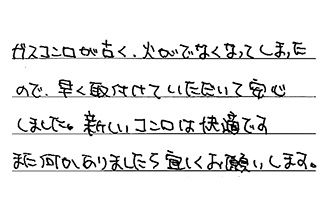 ガスコンロが古く、火がでなくなってしまった
ので、早く取付けていただいて安心
しました。新しいコンロは快適です
また何かありましたら宜しくお願いします。